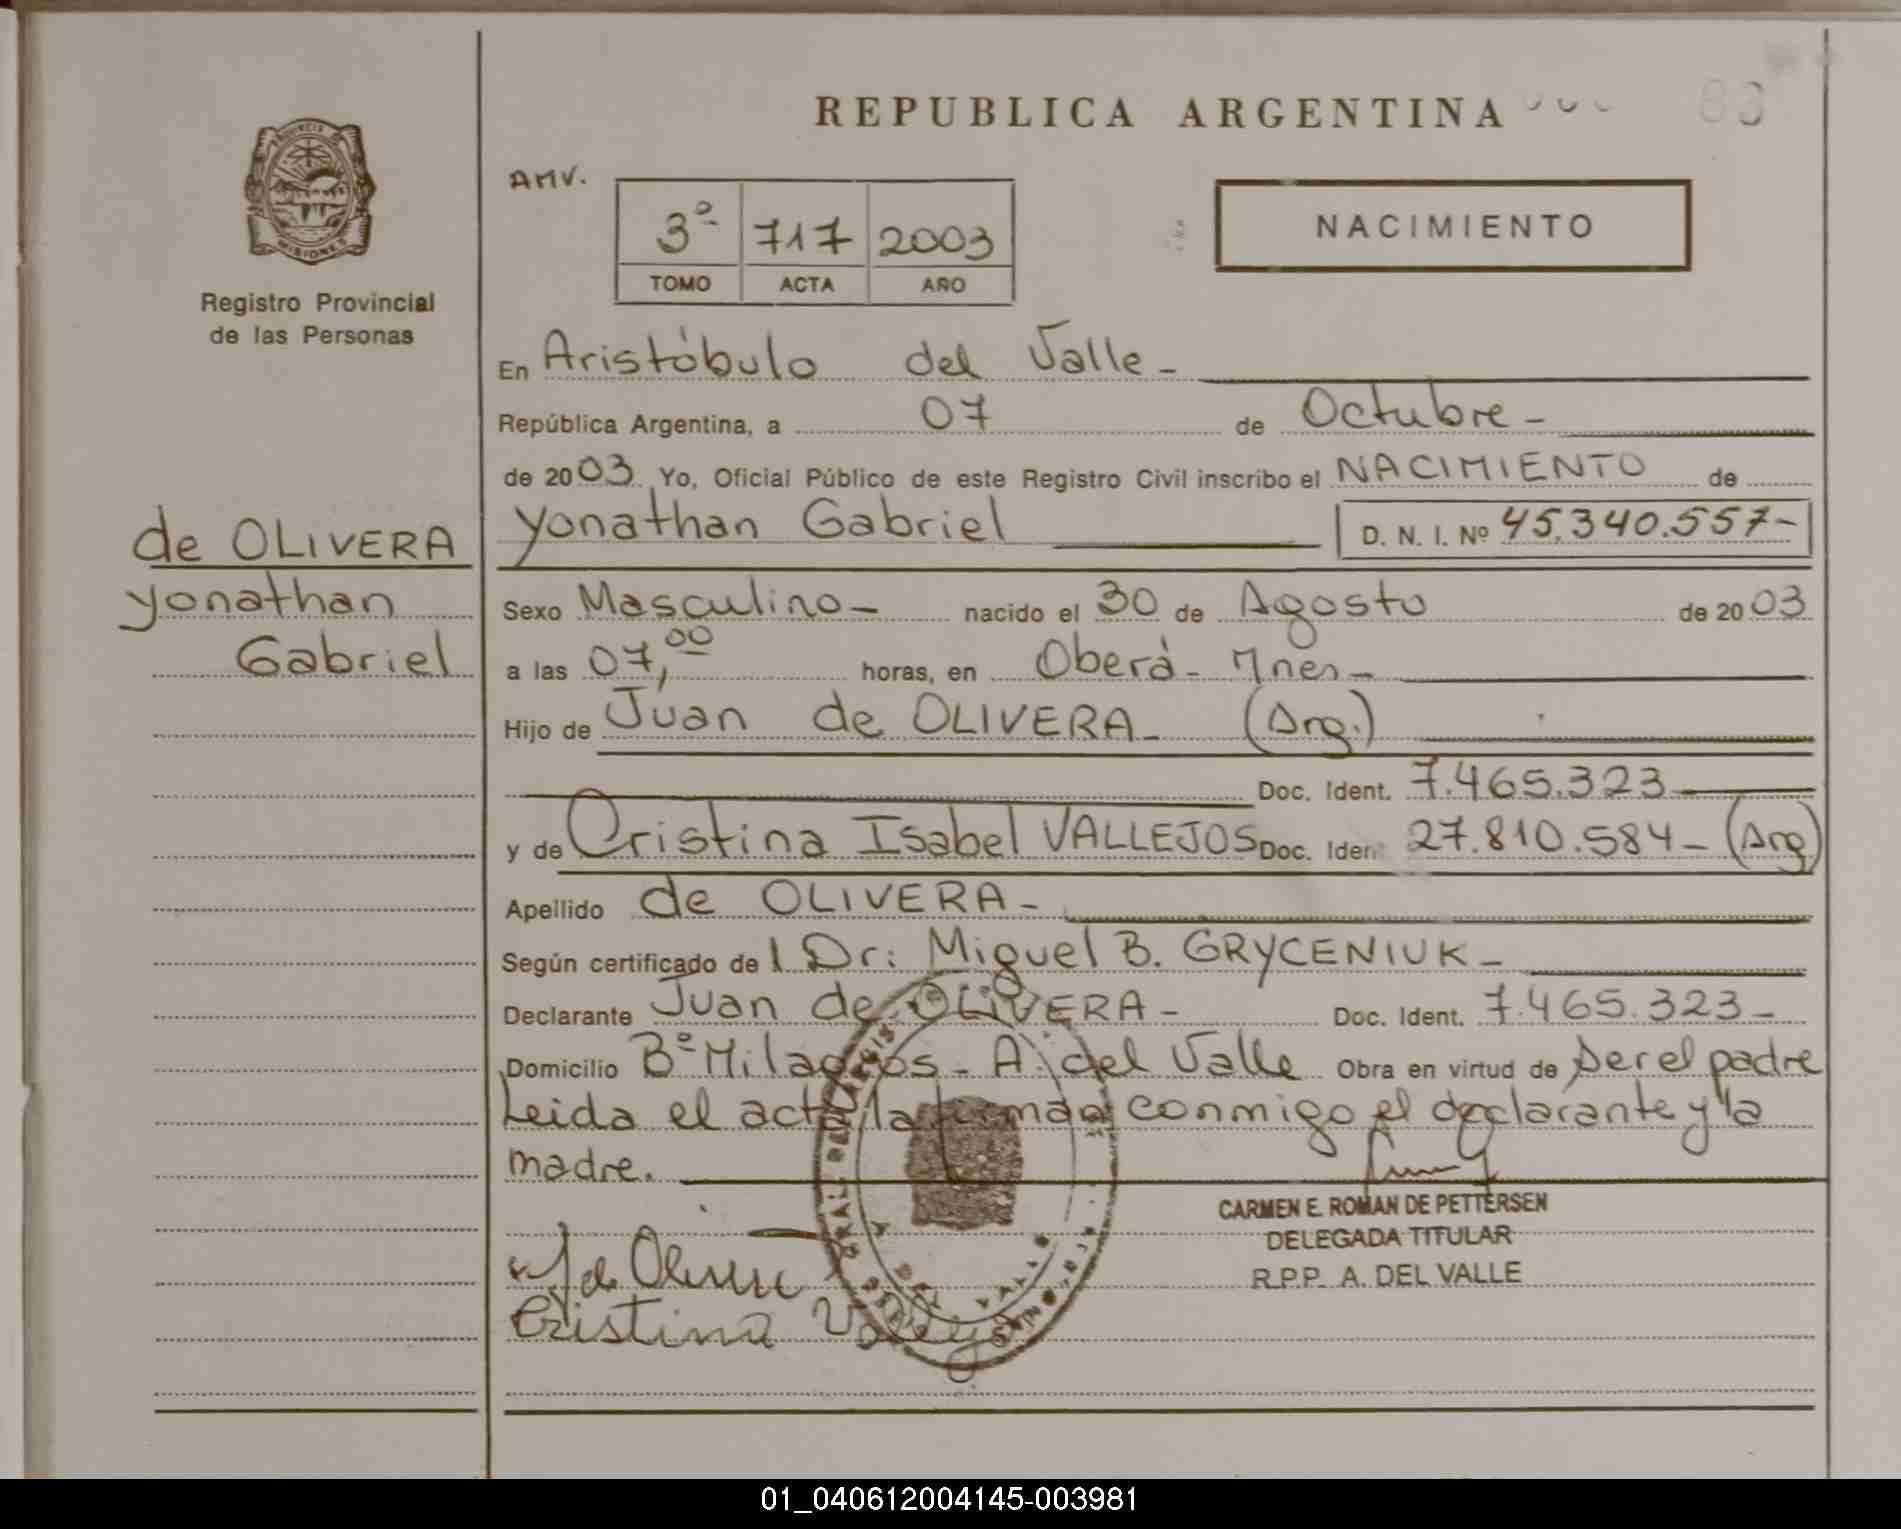 REPUBLICA ARGENTINA
83
PROVINCIA
MISIONES
Registro Provincial
de las Personas
AMV.
3º 717 2003
TOMO ACTA AÑO
NACIMIENTO
En Aristóbulo del Valle -
República Argentina, a 07 de Octubre -
de 2003 Yo, Oficial Público de este Registro Civil inscribo el NACIMIENTO de
Yonathan Gabriel D. N. I. Nº 45.340.557-
de OLIVERA
Yonathan
Gabriel
Sexo Masculino - nacido el 30 de Agosto de 2003
a las 07,00 horas, en Oberá - Mnes -
Hijo de Juan de OLIVERA - (Arg.)
Doc. Ident. 7.465.323
y de Cristina Isabel VALLEJOS Doc. Ident. 27.810.584 - (Arg)
Apellido de OLIVERA -
Según certificado del Dr: Miguel B. GRYCENIUK -
Declarante Juan de OLIVERA - Doc. Ident. 7.465.323 -
Domicilio Bº Milagros - A. del Valle Obra en virtud de ser el padre
Leida el acta, la firman conmigo el declarante y la
madre.
CARMEN E. ROMAN DE PETTERSEN
DELEGADA TITULAR
R.P.P. A. DEL VALLE
J de Olivera
Cristina Vallejos
01_040612004145-003981